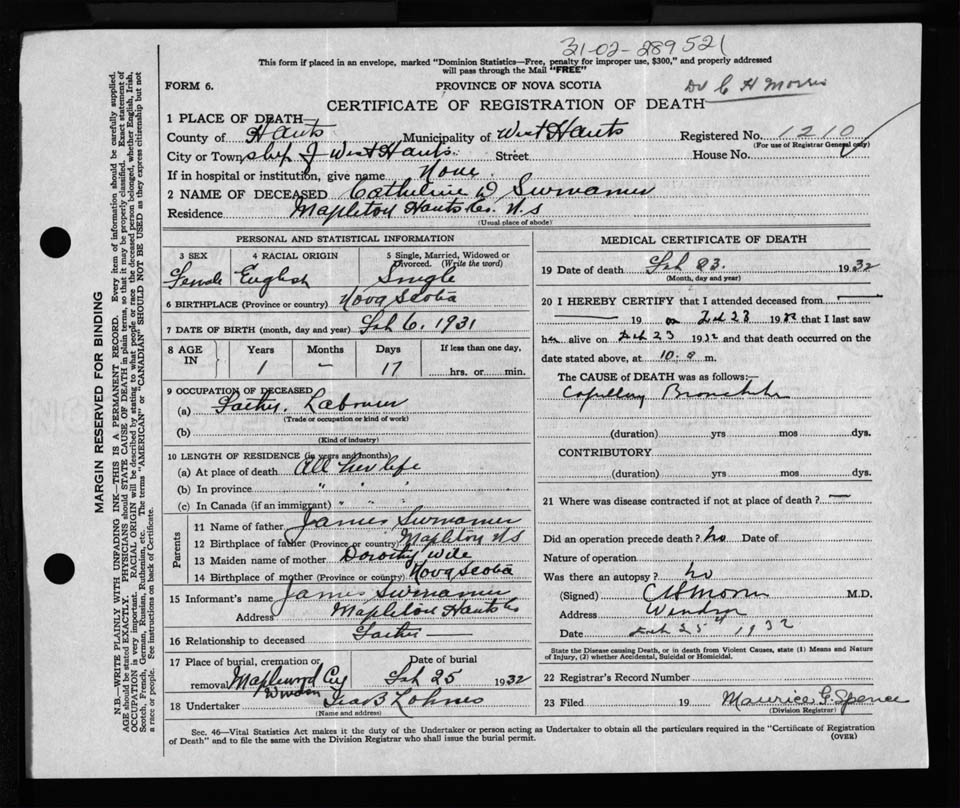 31-02-289521
This form if placed in an envelope, marked "Dominion Statistics—Free, penalty for improper use, $300," and properly addressed
will pass through the Mail "FREE"
FORM 6.
PROVINCE OF NOVA SCOTIA
Dr C H Morris
CERTIFICATE OF REGISTRATION OF DEATH
1 PLACE OF DEATH
County of Hants Municipality of West Hants Registered No. 1210
(For use of Registrar General only)
City or Town ship of West Hants. Street House No.
If in hospital or institution, give name None.
2 NAME OF DECEASED Catherine D Swinamer
Residence Mapleton Hants Co. N.S
(Usual place of abode)
PERSONAL AND STATISTICAL INFORMATION
3 SEX 4 RACIAL ORIGIN 5 Single, Married, Widowed or Divorced. (Write the word)
Female English Single
6 BIRTHPLACE (Province or country) Nova Scotia
7 DATE OF BIRTH (month, day and year) Feb 6, 1931
8 AGE IN Years Months Days If less than one day,
1 – 17 hrs. or min.
9 OCCUPATION OF DECEASED
(a) Father. Labourer
(Trade or occupation or kind of work)
(b)
(Kind of industry)
10 LENGTH OF RESIDENCE (in years and months)
(a) At place of death All her life
(b) In province " " "
(c) In Canada (if an immigrant) " " "
Parents
11 Name of father James Swinamer
12 Birthplace of father (Province or country) Mapleton N.S
13 Maiden name of mother Dorothy Wile
14 Birthplace of mother (Province or country) Nova Scotia
15 Informant's name James Swinamer
Address Mapleton Hants Co
16 Relationship to deceased Father
17 Place of burial, cremation or removal Maplewood Cey Windsor
Date of burial Feb 25 1932
18 Undertaker Lohnes
(Name and address)
MEDICAL CERTIFICATE OF DEATH
19 Date of death Feb 23. 1932
(Month, day and year)
20 I HEREBY CERTIFY that I attended deceased from
19 on Feb 23 1932 that I last saw
her alive on Feb 23 1932 and that death occurred on the
date stated above, at 10. a m.
The CAUSE of DEATH was as follows:—
Capillary Bronchitis
(duration) yrs mos dys.
CONTRIBUTORY
(duration) yrs mos dys.
21 Where was disease contracted if not at place of death? —
Did an operation precede death? No Date of
Nature of operation
Was there an autopsy? No
(Signed) C H Morris M.D.
Address Windsor
Date Feb 25th 1932
State the Disease causing Death, or in death from Violent Causes, state (1) Means and Nature
of Injury, (2) whether Accidental, Suicidal or Homicidal.
22 Registrar's Record Number
23 Filed 19 Maurice G. Spence
(Division Registrar)
Sec. 46—Vital Statistics Act makes it the duty of the Undertaker or person acting as Undertaker to obtain all the particulars required in the "Certificate of Registration
of Death" and to file the same with the Division Registrar who shall issue the burial permit.
(OVER)
MARGIN RESERVED FOR BINDING
N.B.—WRITE PLAINLY WITH UNFADING INK—THIS IS A PERMANENT RECORD. Every item of information should be carefully supplied.
AGE should be stated EXACTLY. PHYSICIANS should STATE CAUSE OF DEATH in plain terms, so that it may be properly classified. Exact statement of
OCCUPATION is very important. RACIAL ORIGIN will be described by stating to what people or race the deceased person belonged, whether English, Irish,
Scotch, French, German, Russian, Ruthenian, etc. The terms "AMERICAN" or "CANADIAN" SHOULD NOT BE USED as they express citizenship but not
a race or people. See instructions on back of Certificate.